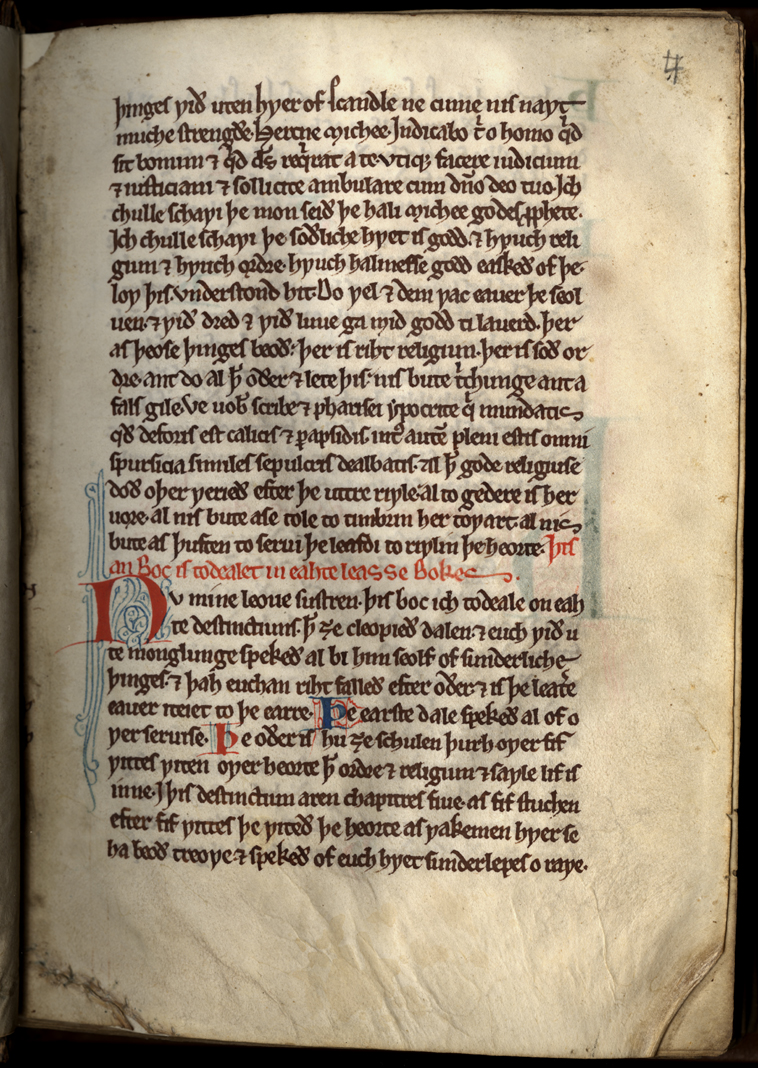 þinges ƿið uten hƿer of scandle ne cume nis naƿt
muche strengðe. Hercne Michee. Indicabo t̾ o homo qđ
sit bonum ⁊ qđ ds̄ requirat a te. vtiq; facere iudicium
⁊ iusticiam ⁊ sollicite ambulare cum dn̄o deo tuo. Ich
chulle schaƿi þe mon seið þe hali Michee godes ꝓphete.
Ich chulle schaƿi þe soðliche hƿet is godd. ⁊ hƿuch reli
giun ⁊ hƿuch ordre. hƿuch halinesse godd easkeð of þe.
loƿ þis. vnderstond hit. Do ƿel ⁊ dem ƿac eauer þe seol
uen. ⁊ ƿið dred ⁊ ƿið luue ga mid godd ti lauerd. þer
as þeose þinges beoð: þer is riht religiun. þer is soð or
dre. ant do al ꝥ oðer ⁊ lete þis. nis bute tͥchunge ant a
fals gile. Ve uob̄ scribe ⁊ pharisei ẏpocrite qͥ mundatis
qđ deforis est calicis ⁊ ꝑapsidis. int᷑ autē pleni estis omni
spursicia similes sepulcris dealbatis. Al ꝥ gode religiuse
doð oþer ƿerieð efter þe uttre riƿle. al to gedere is her
uore. al nis bute ase tole to timbrin her toƿart. al nis
bute as þuften to serui þe leafdi to riƿlin þe heorte. Þis
an Boc is todealet in eahte leasse Bokes.
Nv mine leoue sustren. þis boc ich todeale on eah
te destinctiuns. ꝥ ȝe cleopieð dalen. ⁊ euch ƿið u
te monglunge spekeð al bi him seolf of sunderliche
þinges. ⁊ þah euchan riht falleð efter oðer. ⁊ is þe leat̾e
eauer iteiet to þe earre. Þe earste dale spekeð al of o
ƿer seruise. Þe oðer is hu ȝe schulen þurh oƿer fif
ƿittes ƿiten oƿer heorte ꝥ ordre ⁊ religiun ⁊ saƿle lif is
inne. I þis destinctiun aren chapitres fiue. as fif stucchen
efter fif ƿittes þe ƿiteð þe heorte as ƿakemen hƿer se
ha beoð treoƿe. ⁊ spekeð of euch hƿet sunderlepes o raƿe.